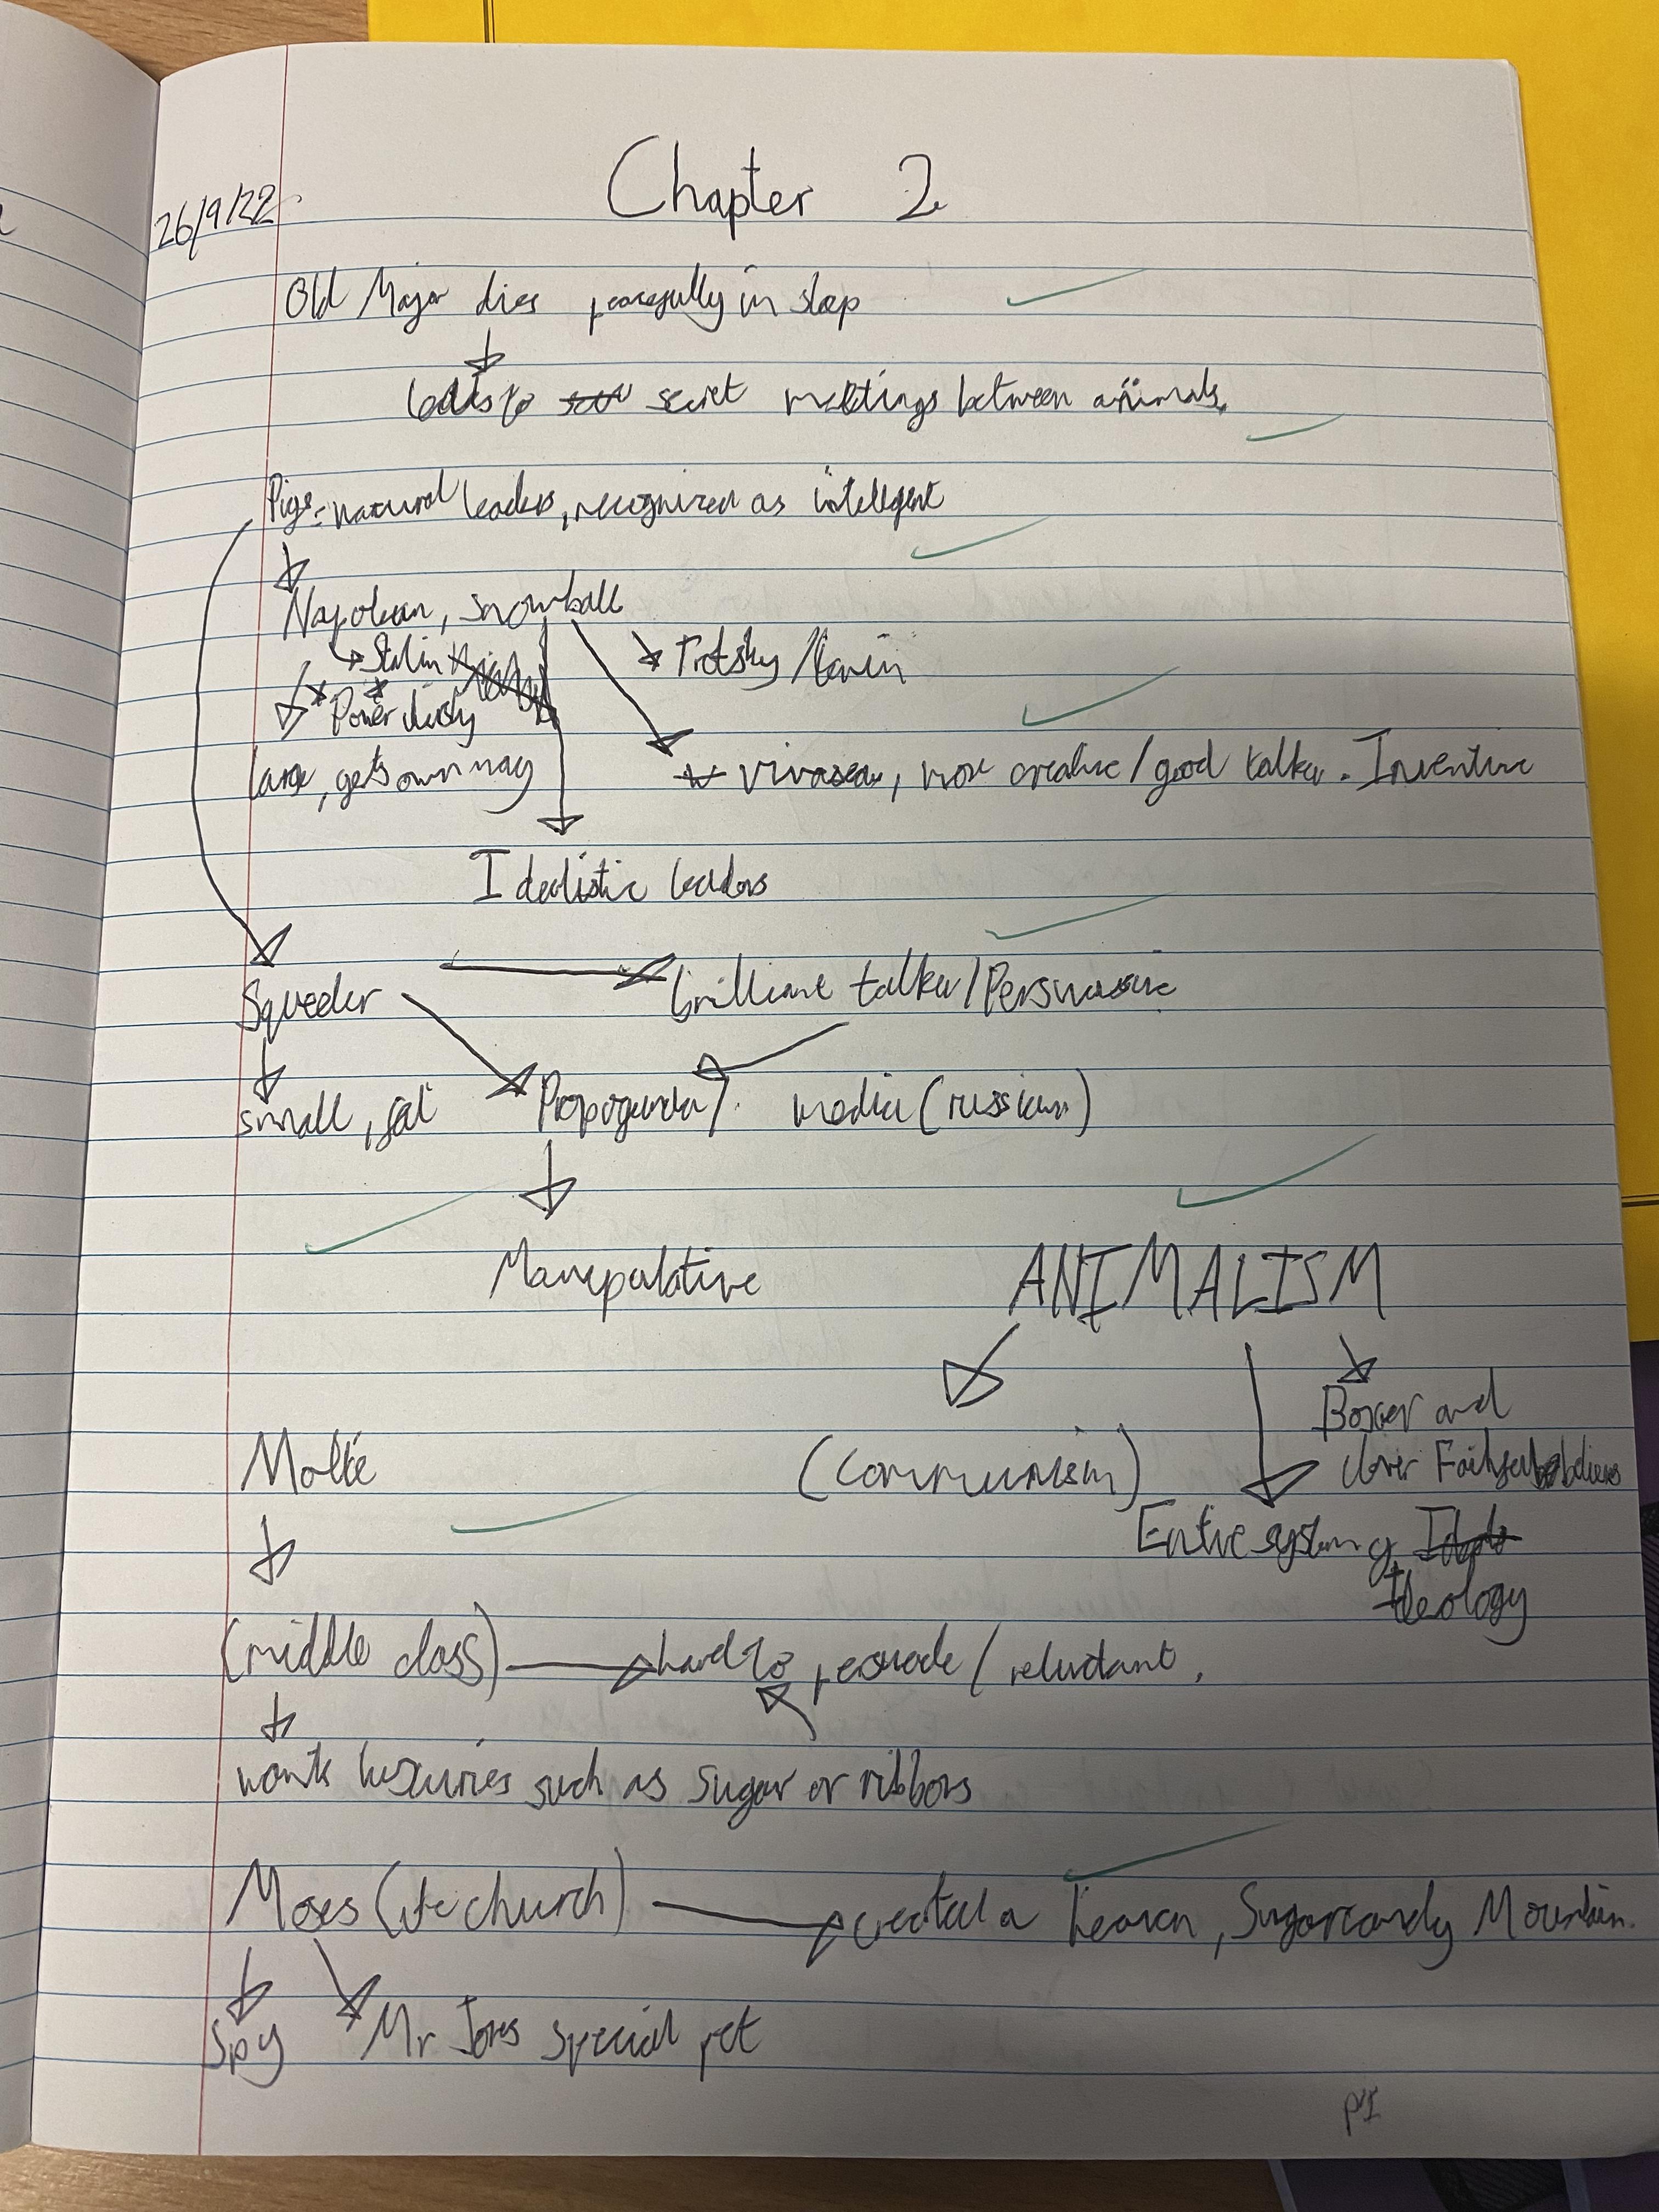 Chapter 2
26/9/22
Old Major dies peacefully in sleep
leads to secret meetings between animals.
Pigs = natural leaders, recognized as intelligent
Napolean, snowball
Stalin
Trotsky / lenin
Power thirsty
large, gets own way
more creative / good talker. Inventive
Idealistic leaders
Squeeler
brilliant talker / Persuasive
small, fat
Propoganda / media (russian)
Manipulative
ANIMALISM
Boxer and
clover Faithful believers
Mollie
(communism)
Entire system of
Ideology
(middle class)
hard to persuade / reluctant.
wants luxuries such as sugar or ribbons
Moses (the church)
created a heaven, Sugarcandy Mountain.
Spy
Mr Jones special pet